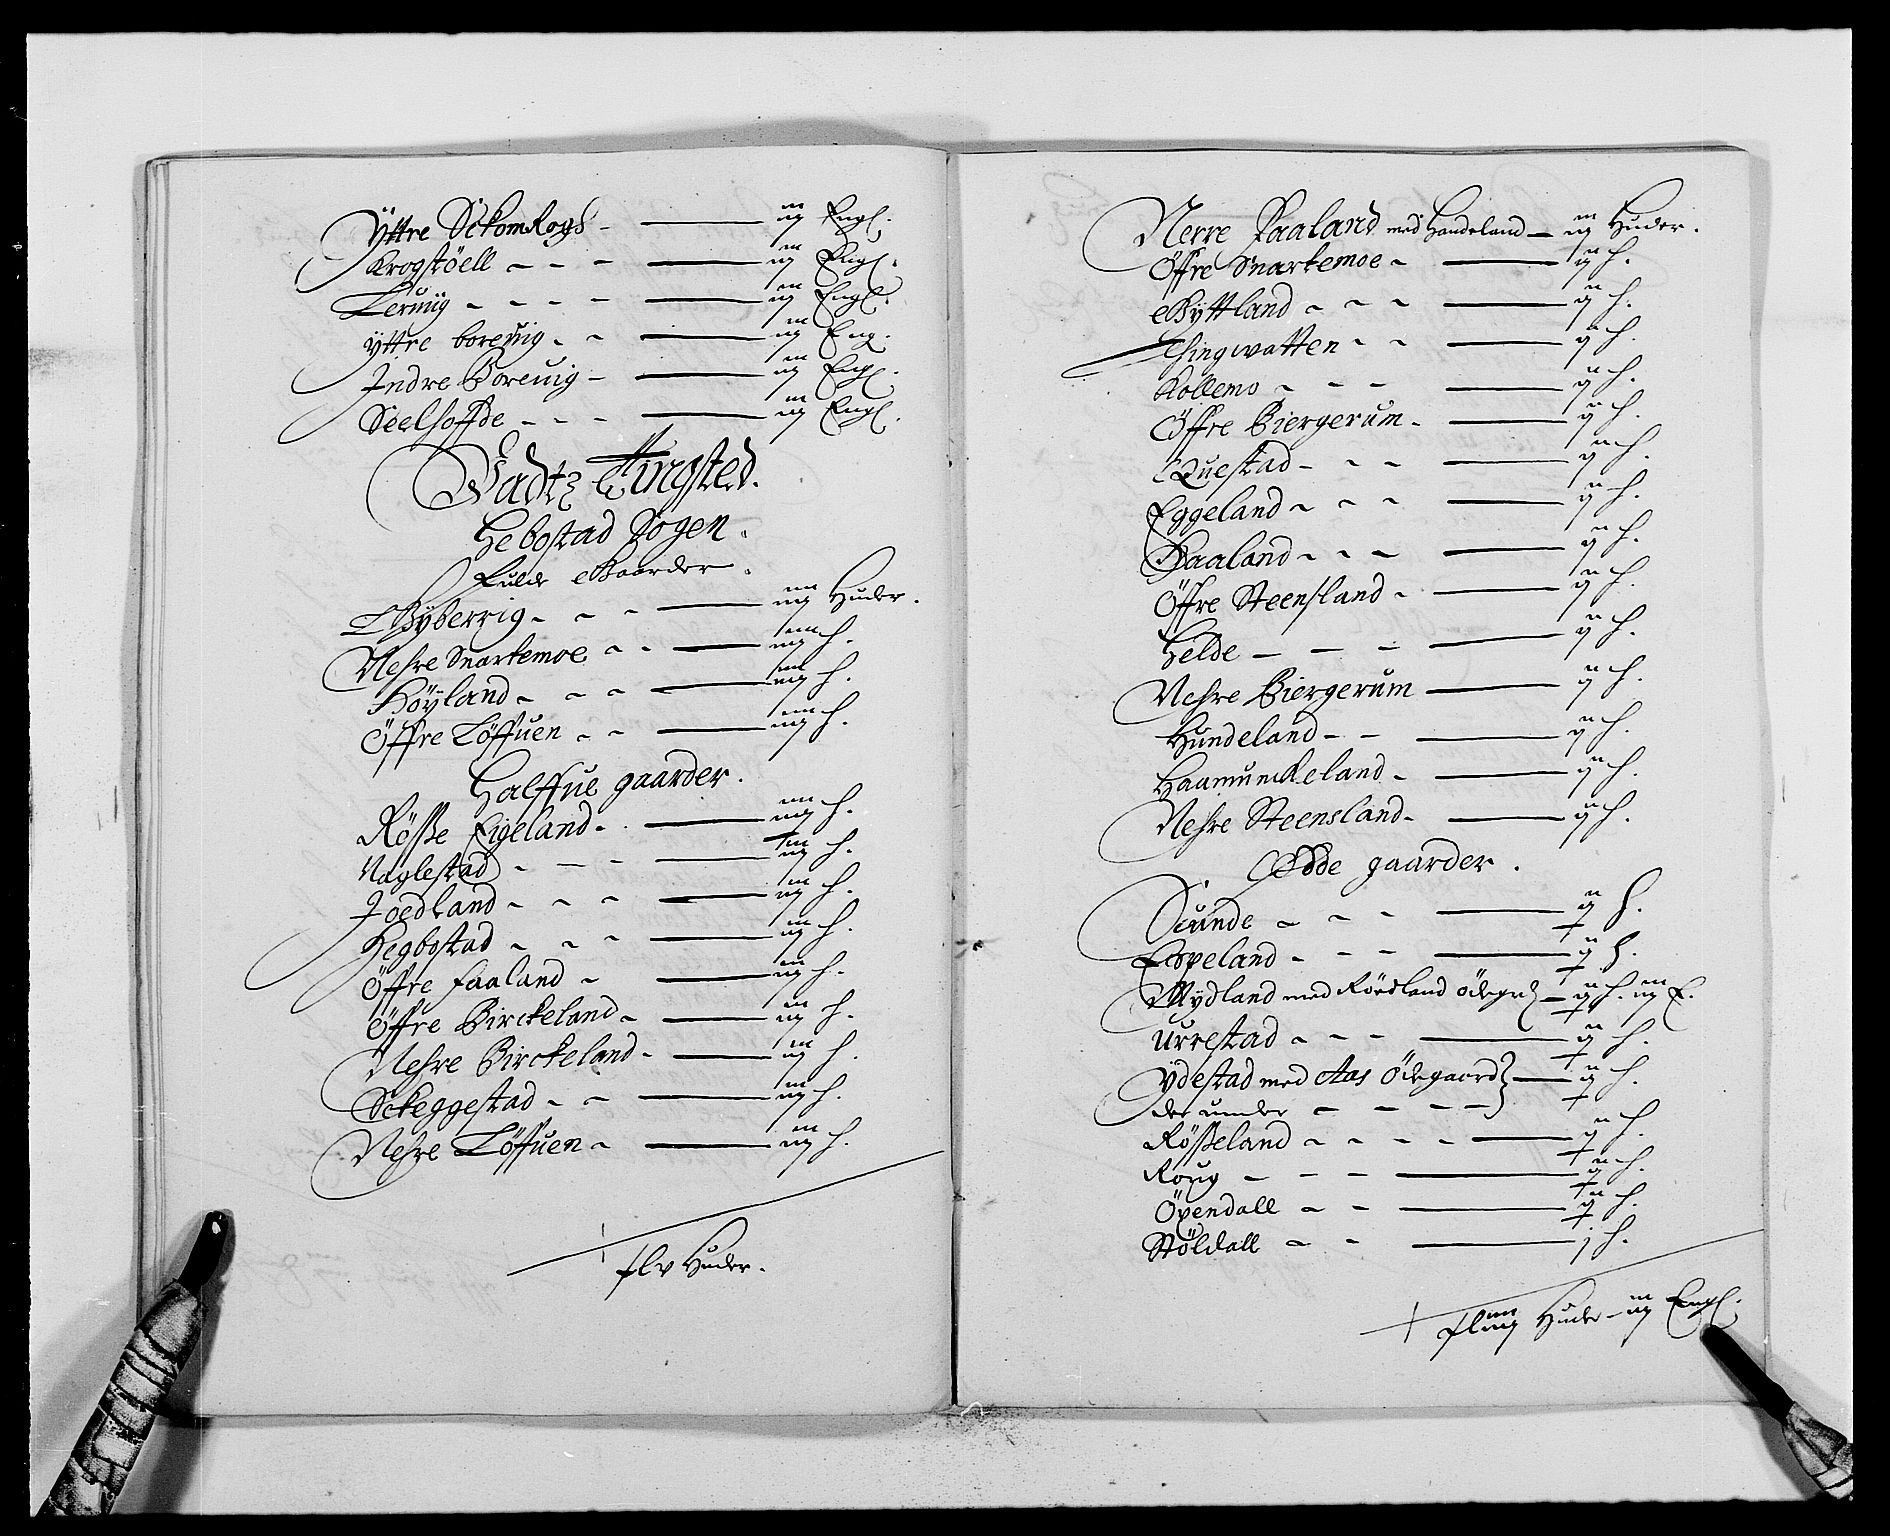 Ÿttre Sckomrogs - iij Engl.
Krogstöell - - - iij Engl.
Leruiig - - - - iij Engl.
Yttre boreuiig - - iij Eng.
Indre Boreuig - iij Engl.
Seelhoffde - - - iij Engl.
Vadtz Tingsted.
Hebostad Sogen.
Fulde Gaarder.
Gÿberrig - - - iiij Huder.
Nehre Snartemoe - - iiij h.
Höÿland - - - iiij h.
Öffre Löffuen - - iiij h.
Halffue gaarder.
Rösße Eigeland - - iiij h.
Naglestad - - - iij h.
Joedland - - - iij h.
Hegbostad - - - iij h.
Öffre Faaland - iij h.
Öffre Birckeland - iij h.
Nehre Birckeland - iij h.
Sckeggestad - - iij h.
Nehre Löffuen - iij h.
flv Huder.
Nerre Faaland med Handeland - iij Huder.
Öffre Snartemoe - ij h.
Gyttland - - - ij h.
Thingwatten - - ij h.
Kollemo - - - ij h.
Öffre Biergerum - ij h.
Questad - - - ij h.
Eggeland - - - ij h.
Haaland - - - ij h.
Öffre Steensland - ij h.
Helde - - - ij h.
Nehre Biergerum ij h.
Hundeland - - ij h.
Haamunckeland - ij h.
Nehre Steensland - ij h.
Ødde gaarder.
Sŭnde - - - ij h.
Espeland - - - ij h.
Mydland med Röedland ödegrd - ij h. iij E.
Urrestad - - - ij h.
Ydestad med Aas Ödegaard } ij h.
der under - - - -
Rösßeland - - - - ij h.
Röÿg - - - ij h.
Öpendall - - ij h.
Stöldall - - j h.
fliiij Huder - iij Engl.